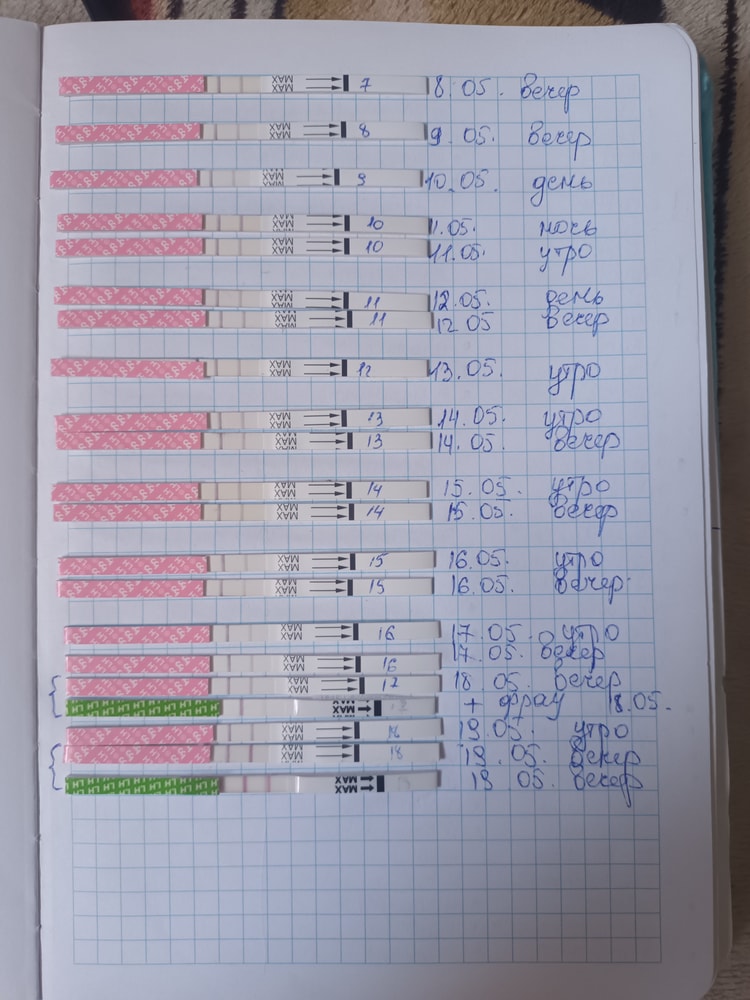 MAX 7 8.05. вечер
MAX 8 9.05. вечер
MAX 9 10.05. день
MAX 10 11.05. ночь
MAX 10 11.05. утро
MAX 11 12.05. день
MAX 11 12 05 вечер
MAX 12 13.05. утро
MAX 13 14.05. утро
MAX 13 14.05. вечер
MAX 14 15.05. утро
MAX 14 15.05. вечер
MAX 15 16.05. утро
MAX 15 16.05. вечер.
MAX 16 17.05. утро
MAX 16 17.05. вечер
MAX 17 18 05. вечер
MAX + фрау 18.05.
MAX 18 19.05. утро
MAX 18 19.05. вечер
MAX 19 05. вечер